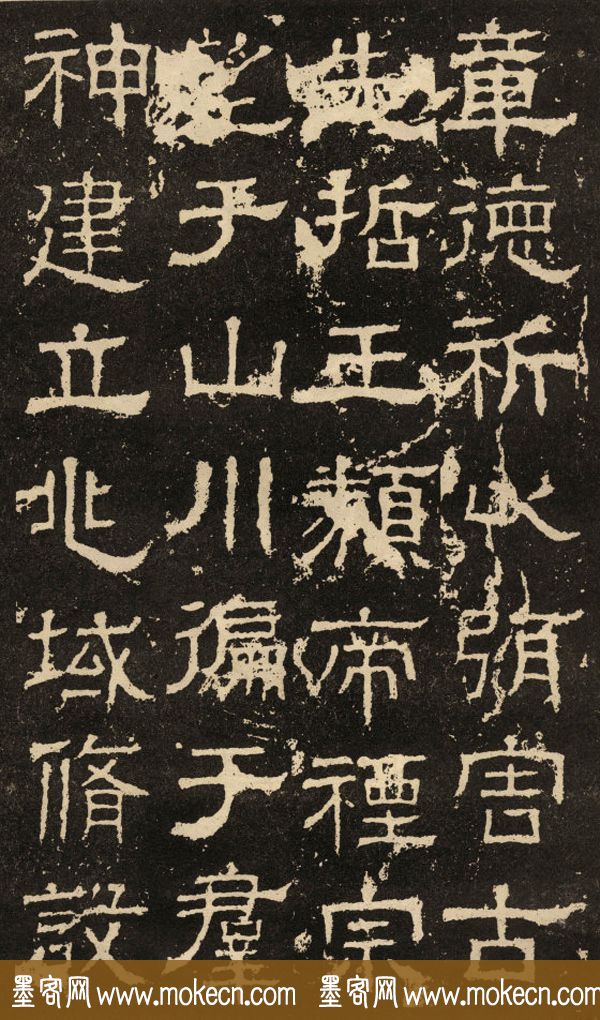 章德祈弭害古
先哲王類帝禋宗
望于山川徧于羣
神建立兆域脩設
墨客网 www.mokecn.com 墨客网 www.mokecn.com